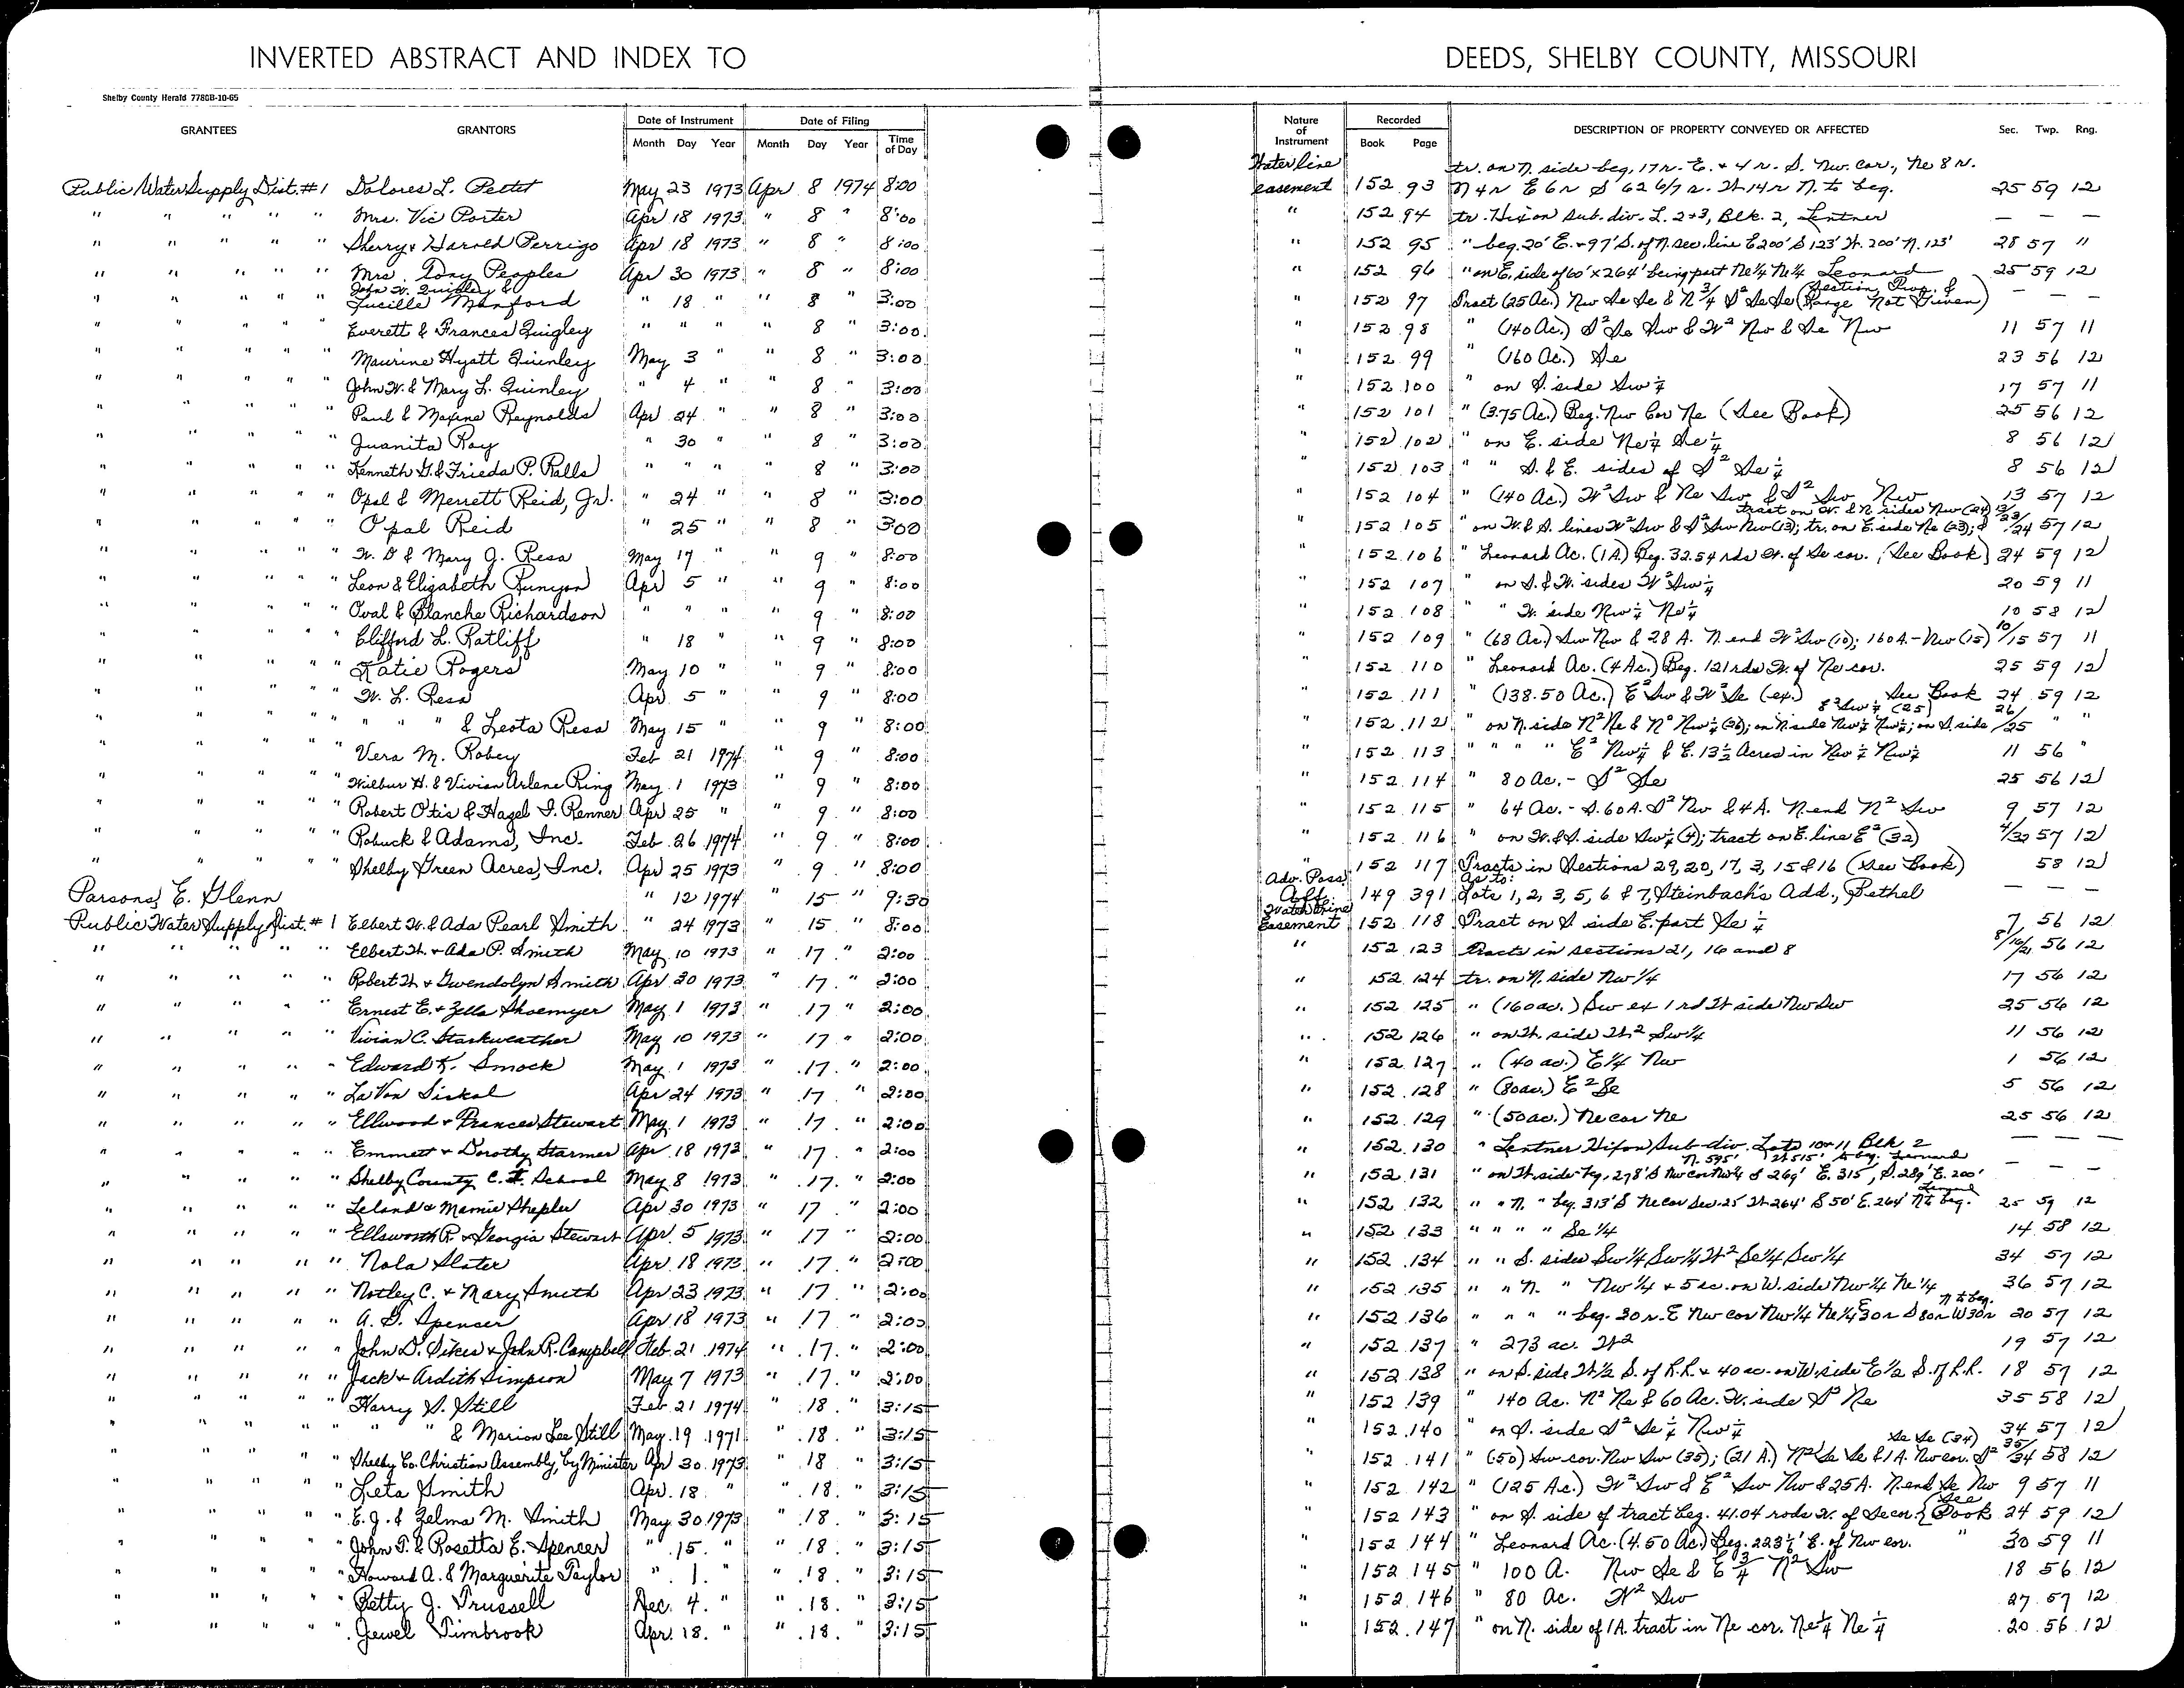 INVERTED ABSTRACT AND INDEX TO DEEDS, SHELBY COUNTY, MISSOURI
Shelby County Herald 7780B-10-65
GRANTEES GRANTORS Date of Instrument Date of Filing Nature of Instrument Recorded DESCRIPTION OF PROPERTY CONVEYED OR AFFECTED Sec. Twp. Rng.
Month Day Year Month Day Year Time of Day Book Page
Water line tr. on N. side beg. 17 r. E. & 4 r. S. Nw. cor., Ne 8 r.
Public Water Supply Dist. #1 Dolores L. Pettet May 23 1973 Apr 8 1974 8:00 easement 152 93 N 4 r E 6 r S 62 6/7 r. W 14 r N. to beg. 25 59 12
" " " " " Mrs. Vic Porter Apr 18 1973 " 8 " 8:00 " 152 94 tr. Hixon sub. div. L. 2+3, Blk. 2, Lentner — — —
" " " " " Sherry & Harold Perrigo Apr 18 1973 " 8 " 8:00 " 152 95 " beg. 20' E. + 97' S. of N. sec. line E 200' S 123' W. 200' N. 123' 28 57 "
" " " " " Mrs. Tony Peoples Apr 30 1973 " 8 " 8:00 " 152 96 " on E. side of 60' x 264' being part Ne 1/4 Ne 1/4 Leonard 25 59 12
John W. Quigley & Section, Twp. &
" " " " " Lucille Manford " 18 " " 8 " 3:00 " 152 97 Tract (25 Ac.) Nw Se Se & N 3/4 S² Se Se (Range Not Given) — — —
" " " " " Everett & Frances Quigley " " " " 8 " 3:00 " 152 98 " (140 Ac.) S² Se Sw & W² Nw & Se Nw 11 57 11
" " " " " Maurine Hyatt Quinley May 3 " " 8 " 3:00 " 152 99 " (160 Ac.) Se 23 56 12
" " " " " John W. & Mary L. Quinley " 4 " " 8 " 3:00 " 152 100 " on S. side Sw 1/4 17 57 11
" " " " " Paul & Maxine Reynolds Apr 24 " " 8 " 3:00 " 152 101 " (3.75 Ac.) Beg. Nw Cor Ne (See Book) 25 56 12
" " " " " Juanita Ray " 30 " " 8 " 3:00 " 152 102 " on E. side Ne 1/4 Se 1/4 8 56 12
" " " " " Kenneth G. & Frieda P. Ralls " " " " 8 " 3:00 " 152 103 " " S. & E. sides of S² Se 1/4 8 56 12
" " " " " Opal & Merrett Reid, Jr. " 24 " " 8 " 3:00 " 152 104 " (140 Ac.) W² Sw & Ne Sw & S² Sw Nw 13 57 12
tract on W. & N. sides Nw (24) 13/23
" " " " " Opal Reid " 25 " " 8 " 3:00 " 152 105 " on W. & S. lines W² Sw & S² Sw Nw (13); tr. on E. side Ne (23); & /24 57 12
" " " " " W. D & Mary J. Resa May 17 " " 9 " 8:00 " 152 106 " Leonard Ac. (1 A.) Beg. 32.54 rds W. of Se cor. (See Book) 24 59 12
" " " " " Leon & Elizabeth Runyon Apr 5 " " 9 " 8:00 " 152 107 " on S. & W. sides W² Sw 1/4 20 59 11
" " " " " Oval & Blanche Richardson " " " " 9 " 8:00 " 152 108 " " W. side Nw 1/4 Ne 1/4 10 58 12
" " " " " Clifford L. Ratliff " 18 " " 9 " 8:00 " 152 109 " (68 Ac.) Sw Nw & 28 A. N. end W² Sw (10); 160 A.- Nw (15) 10/15 57 11
" " " " " Katie Rogers May 10 " " 9 " 8:00 " 152 110 " Leonard Ac. (4 Ac.) Beg. 121 rds W. of Ne cor. 25 59 12
" " " " " W. L. Resa Apr 5 " " 9 " 8:00 " 152 111 " (138.50 Ac.) E² Sw & W² Se (ex.) See Book 24 59 12
S² Sw 1/4 (25) 26
" " " " " " " & Leota Resa May 15 " " 9 " 8:00 " 152 112 " on N. side N² Ne & N² Nw 1/4 (26); on N. side Nw 1/4 Nw 1/4; on S. side /25 " "
" " " " " Vera M. Robey Feb 21 1974 " 9 " 8:00 " 152 113 " " " " E² Nw 1/4 & E. 13 1/2 Acres in Nw 1/4 Nw 1/4 11 56 "
" " " " " Wilbur H. & Vivian Arlene Ring May 1 1973 " 9 " 8:00 " 152 114 " 80 Ac. - S² Se 25 56 12
" " " " " Robert Otis & Hazel I. Renner Apr 25 " " 9 " 8:00 " 152 115 " 64 Ac. - S. 60 A. S² Nw & 4 A. N. end N² Sw 9 57 12
" " " " " Robuck & Adams, Inc. Feb. 26 1974 " 9 " 8:00 " 152 116 " on W. & S. side Sw 1/4 (4); tract on E. line E² (32) 4/32 57 12
" " " " " Shelby Green Acres, Inc. Apr 25 1973 " 9 " 8:00 " 152 117 Tracts in Sections 29, 20, 17, 3, 15 & 16 (See Book) 58 12
Adv. Poss. As to:
Parsons, E. Glenn " 12 1974 " 15 " 9:30 Aff. 149 391 Lots 1, 2, 3, 5, 6 & 7, Steinbach's Add., Bethel — — —
Public Water Supply Dist. #1 Elbert W. & Ada Pearl Smith " 24 1973 " 15 " 8:00 Water Line Easement 152 118 Tract on S side E. part Se 1/4 7 56 12
" " " " " Elbert W. & Ada P. Smith May 10 1973 " 17 " 2:00 " 152 123 tracts in sections 21, 16 and 8 8/16/21 56 12
" " " " " Robert W. & Gwendolyn Smith Apr 30 1973 " 17 " 2:00 " 152 124 tr. on N. side Nw 1/4 17 56 12
" " " " " Ernest E. & Zella Shoemyer May 1 1973 " 17 " 2:00 " 152 125 " (160 ac.) Sw ex 1 rd W side Nw Sw 25 56 12
" " " " " Vivian C. Starkweather May 10 1973 " 17 " 2:00 " 152 126 " on W. side W² Sw 1/4 11 56 12
" " " " " Edward K. Smock May 1 1973 " 17 " 2:00 " 152 127 " (40 ac.) E 1/4 Nw 1 56 12
" " " " " LaVon Siskal Apr 24 1973 " 17 " 2:00 " 152 128 " (80 ac.) E² Se 5 56 12
" " " " " Ellwood & Frances Stewart May 1 1973 " 17 " 2:00 " 152 129 " (50 ac.) Ne cor Ne 25 56 12
" " " " " Emmett & Dorothy Starmer Apr 18 1973 " 17 " 2:00 " 152 130 " Lentner Hixon Sub-div. Lots 10 & 11 Blk 2 — — —
N. 595' W 515' to beg. Leonard
" " " " " Shelby County C. I. School May 8 1973 " 17 " 2:00 " 152 131 " on W. side beg. 278' S Nw cor Nw 1/4 S 269' E. 315', S. 289' E. 200' — — —
Leonard
" " " " " Leland & Mamie Shepler Apr 30 1973 " 17 " 2:00 " 152 132 " " N. " beg. 313' S Ne cor Sec. 25 W 264' S 50' E. 264' N to beg. 25 59 12
" " " " " Ellsworth R. & Georgia Stewart Apr. 5 1973 " 17 " 2:00 " 152 133 " " " " Se 1/4 14 58 12
" " " " " Nola Slater Apr. 18 1973 " 17 " 2:00 " 152 134 " " S. sides Sw 1/4 Sw 1/4 W² Se 1/4 Sw 1/4 34 57 12
" " " " " Notley C. & Mary Smith Apr 23 1973 " 17 " 2:00 " 152 135 " " N. " Nw 1/4 & 5 ac. on W. side Nw 1/4 Ne 1/4 36 57 12
N to beg.
" " " " " A. G. Spencer Apr 18 1973 " 17 " 2:00 " 152 136 " " " " beg. 30 r. E Nw cor Nw 1/4 Ne 1/4 E 30 r S 80 r W 30 r 20 57 12
" " " " " John D. Sikes & John R. Campbell Feb. 21 1974 " 17 " 2:00 " 152 137 " 273 ac. W² 19 57 12
" " " " " Jack & Ardith Simpson May 7 1973 " 17 " 2:00 " 152 138 " on S. side W 1/2 S. of R.R. & 40 ac. on W. side E 1/2 S. of R.R. 18 57 12
" " " " " Harry S. Still Feb 21 1974 " 18 " 3:15 " 152 139 " 140 Ac. N² Ne & 60 Ac. W. side S² Ne 35 58 12
" " " " " " " & Marion Lee Still May 19 1971 " 18 " 3:15 " 152 140 " on S. side S² Se 1/4 Nw 1/4 34 57 12
Se Se (34) 35
" " " " " Shelby Co. Christian Assembly, by Minister Apr 30 1973 " 18 " 3:15 " 152 141 " (50) Sw cor. Nw Sw (35); (21 A.) N² Se Se & 1 A. Nw cor. S² /34 58 12
" " " " " Leta Smith Apr. 18 " " 18 " 3:15 " 152 142 " (125 Ac.) W² Sw & E² Sw Nw & 25 A. N. end Se Nw 9 57 11
" " " " " E. J. & Zelma M. Smith May 30 1973 " 18 " 3:15 " 152 143 " on S. side of tract beg. 41.04 rods W. of Se cor. { See Book 24 59 12
" " " " " John T. & Rosetta E. Spencer " 15 " " 18 " 3:15 " 152 144 " Leonard Ac. (4.50 Ac.) Beg. 223 1/2' E. of Nw cor. " 30 59 11
" " " " " Howard A. & Marguerite Taylor " 1 " " 18 " 3:15 " 152 145 " 100 A. Nw Se & E 3/4 N² Sw 18 56 12
" " " " " Betty J. Trussell Dec. 4 " " 18 " 3:15 " 152 146 " 80 Ac. W² Sw 27 57 12
" " " " " Jewel Timbrook Apr. 18 " " 18 " 3:15 " 152 147 " on N. side of 1 A. tract in Ne cor. Ne 1/4 Ne 1/4 20 56 12